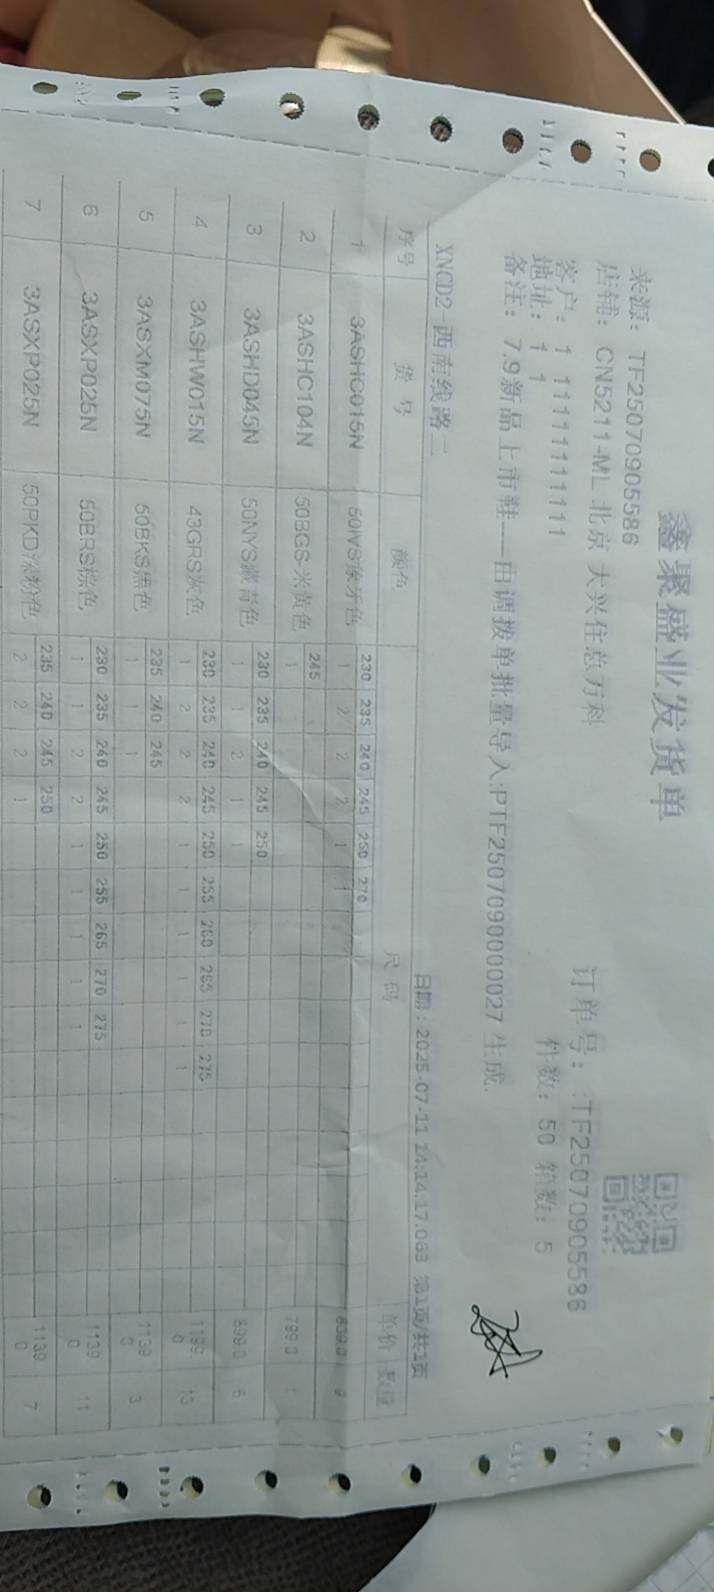 鑫聚盛业发货单
来源: TF25070905586
店铺: CN5211-ML 北京 大兴住总万科 订单号: :TF25070905586
客户: 1 11111111111 件数: 50 箱数: 5
地址: 1 1
备注: 7.9新品上市鞋——由调拨单批量导入:PTF2507090000027 生成.
XNCD2-西南线路二 日期: 2025-07-11 14:14:17.063 第1页/共1页
序号 货号 颜色 尺码 单价 数值
230 235 240 245 250 270
1 3ASHC015N 50IVS象牙色 1 2 2 2 1 839.0 9
245
2 3ASHC104N 50BGS-米黄色 1 799.0 1
230 235 240 245 250
3 3ASHD045N 50NYS藏青色 1 1 2 1 1 899.0 6
230 235 240 245 250 255 260 265 270 275
4 3ASHW015N 43GRS灰色 1 2 2 2 1 1 1 1 1 1 1199.0 13
235 240 245
5 3ASXM075N 50BKS黑色 1 1 1 1139.0 3
230 235 240 245 250 255 265 270 275
6 3ASXP025N 50BRS棕色 1 1 2 2 1 1 1 1 1 1139.0 11
235 240 245 250
7 3ASXP025N 50PKD深粉色 2 2 2 1 1139.0 7